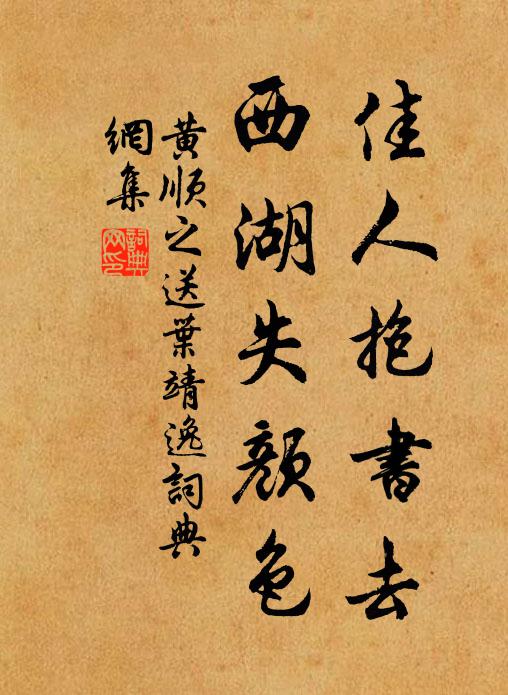 佳人抱書去
西湖失顏色
黄順之送葉靖逸詞典
網集
詞典網印